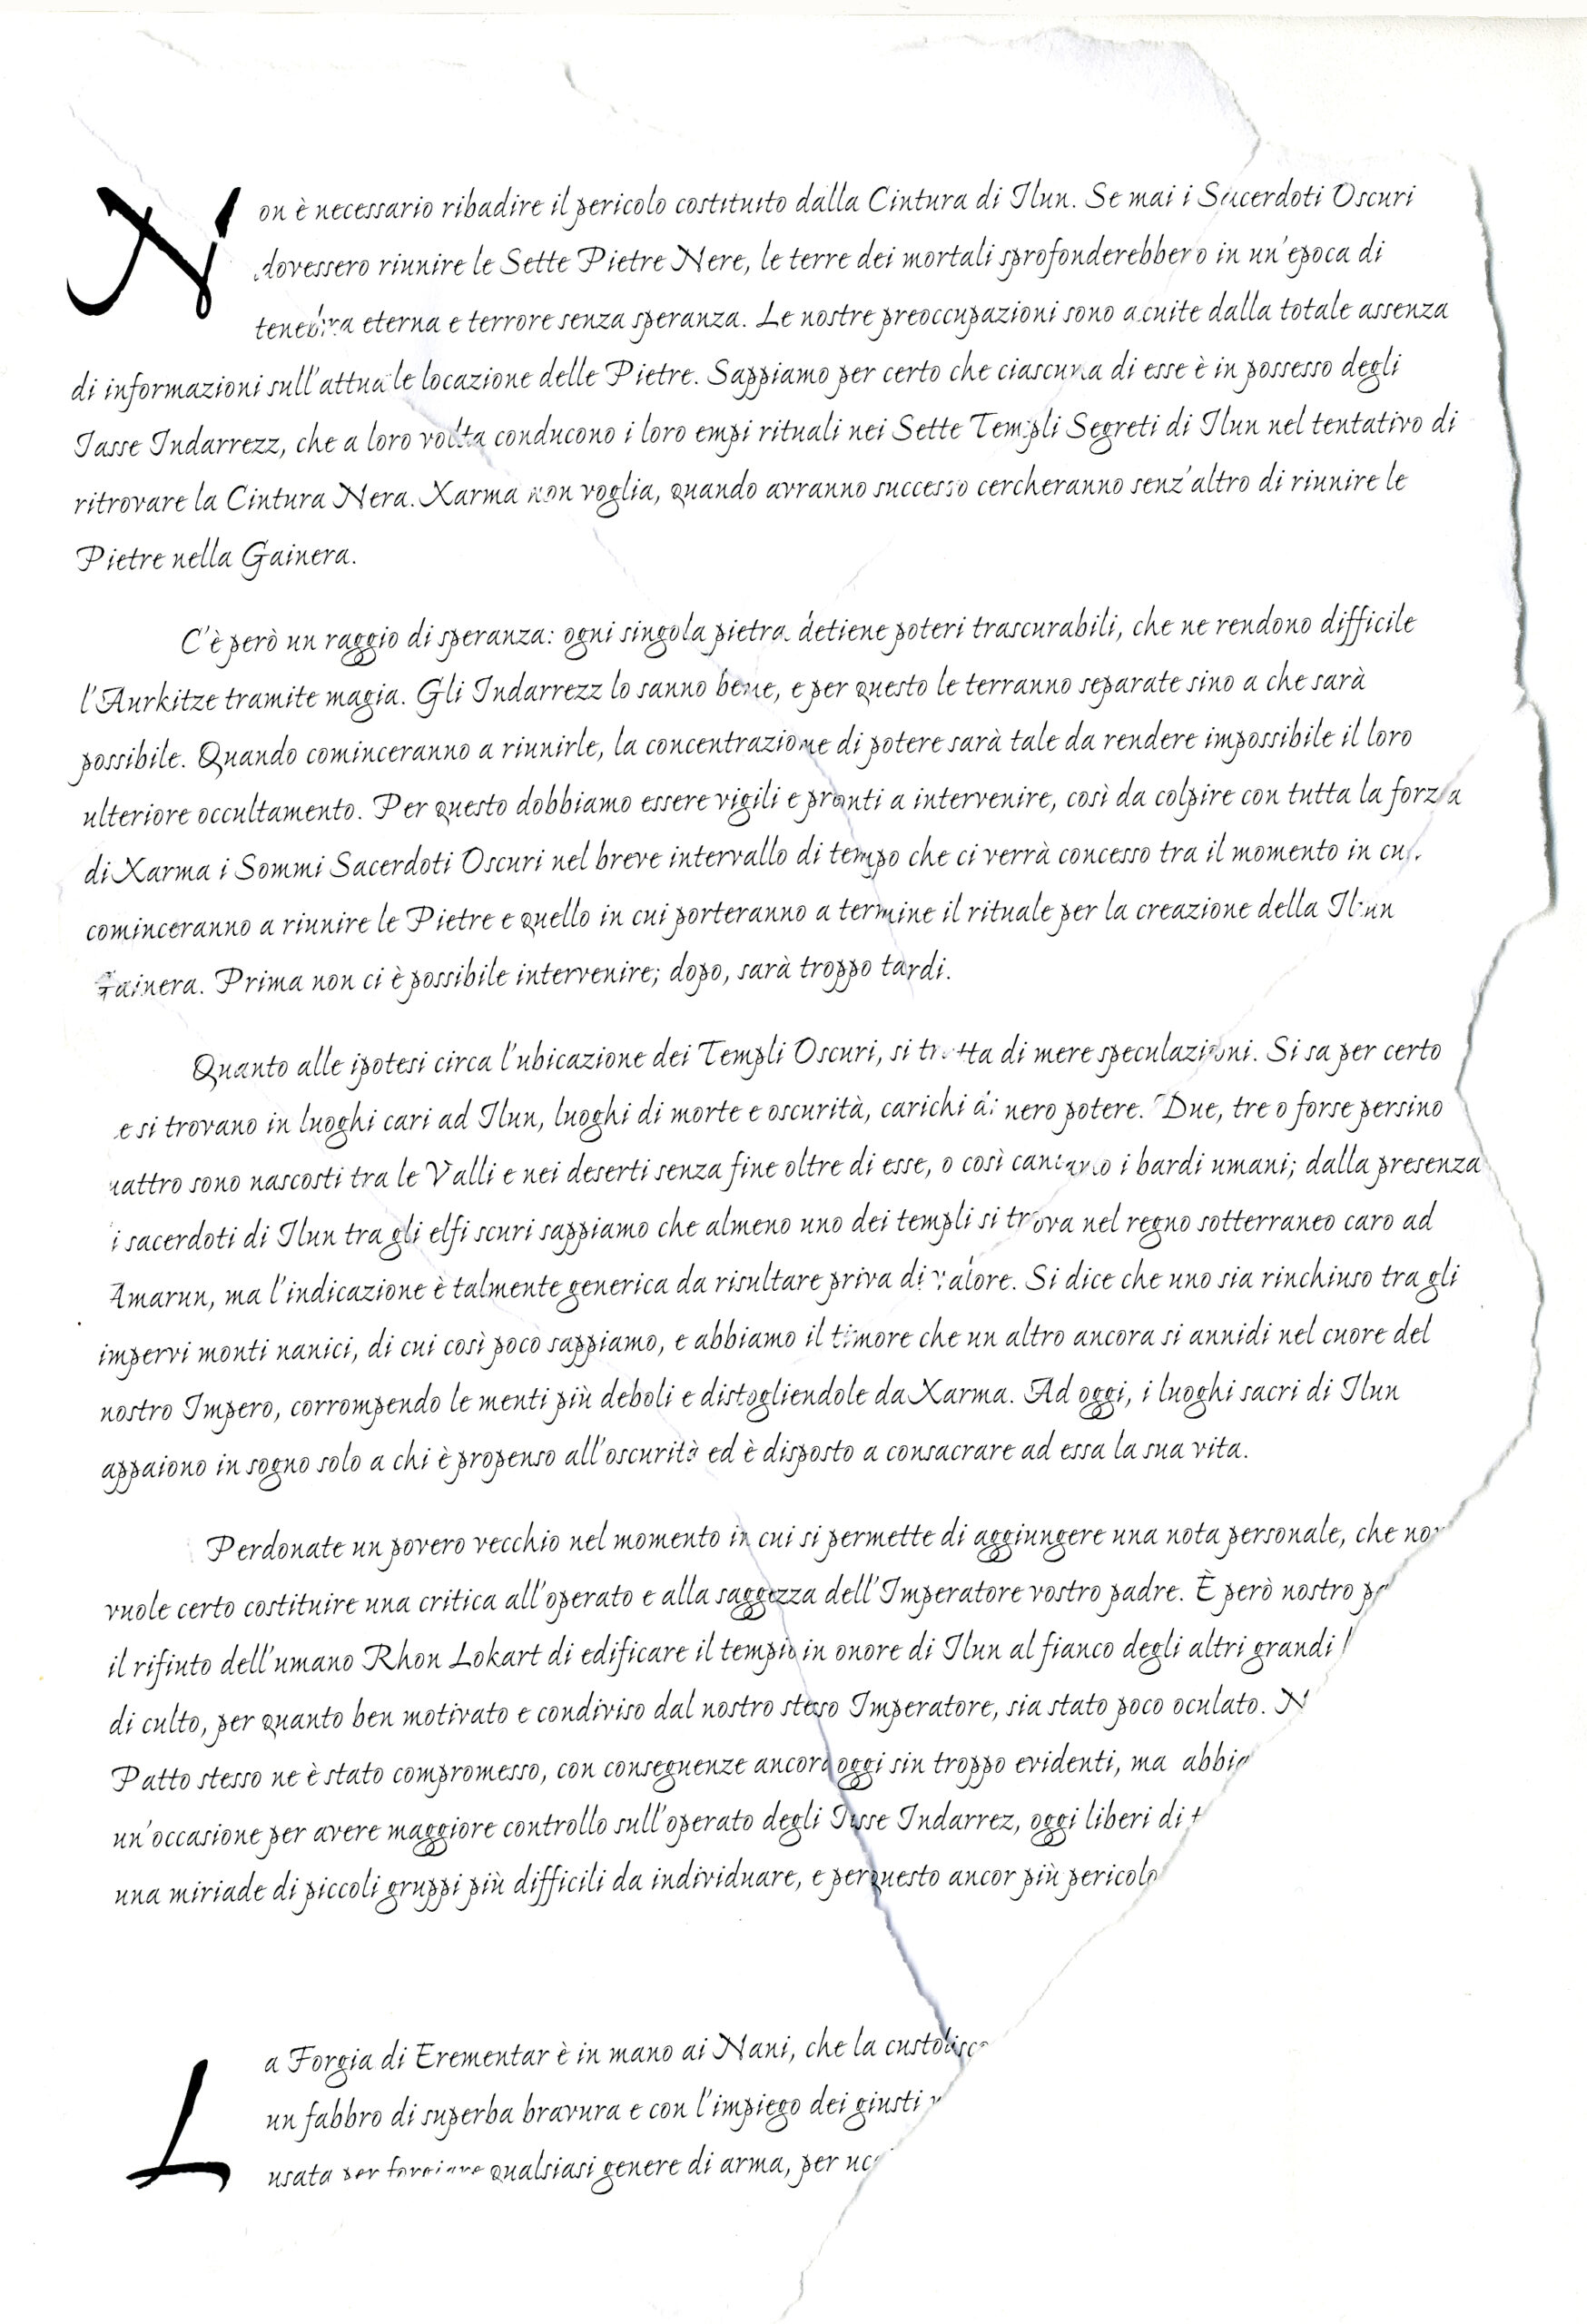 Non è necessario ribadire il pericolo costituito dalla Cintura di Ilun. Se mai i Sacerdoti Oscuri
dovessero riunire le Sette Pietre Nere, le terre dei mortali sprofonderebbero in un'epoca di
tenebra eterna e terrore senza speranza. Le nostre preoccupazioni sono acuite dalla totale assenza
di informazioni sull'attuale locazione delle Pietre. Sappiamo per certo che ciascuna di esse è in possesso degli
Iasse Indarrezz, che a loro volta conducono i loro empi rituali nei Sette Templi Segreti di Ilun nel tentativo di
ritrovare la Cintura Nera. Xarma non voglia, quando avranno successo cercheranno senz'altro di riunire le
Pietre nella Gainera.
C'è però un raggio di speranza: ogni singola pietra detiene poteri trascurabili, che ne rendono difficile
l'Aurkitze tramite magia. Gli Indarrezz lo sanno bene, e per questo le terranno separate sino a che sarà
possibile. Quando cominceranno a riunirle, la concentrazione di potere sarà tale da rendere impossibile il loro
ulteriore occultamento. Per questo dobbiamo essere vigili e pronti a intervenire, così da colpire con tutta la forza
di Xarma i Sommi Sacerdoti Oscuri nel breve intervallo di tempo che ci verrà concesso tra il momento in cui
cominceranno a riunire le Pietre e quello in cui porteranno a termine il rituale per la creazione della Ilun
Gainera. Prima non ci è possibile intervenire; dopo, sarà troppo tardi.
Quanto alle ipotesi circa l'ubicazione dei Templi Oscuri, si tratta di mere speculazioni. Si sa per certo
e si trovano in luoghi cari ad Ilun, luoghi di morte e oscurità, carichi di nero potere. Due, tre o forse persino
uattro sono nascosti tra le Valli e nei deserti senza fine oltre di esse, o così cantano i bardi umani; dalla presenza
i sacerdoti di Ilun tra gli elfi scuri sappiamo che almeno uno dei templi si trova nel regno sotterraneo caro ad
Amarun, ma l'indicazione è talmente generica da risultare priva di valore. Si dice che uno sia rinchiuso tra gli
impervi monti nanici, di cui così poco sappiamo, e abbiamo il timore che un altro ancora si annidi nel cuore del
nostro Impero, corrompendo le menti più deboli e distogliendole da Xarma. Ad oggi, i luoghi sacri di Ilun
appaiono in sogno solo a chi è propenso all'oscurità ed è disposto a consacrare ad essa la sua vita.
Perdonate un povero vecchio nel momento in cui si permette di aggiungere una nota personale, che non
vuole certo costituire una critica all'operato e alla saggezza dell'Imperatore vostro padre. È però nostro pa
il rifiuto dell'umano Rhon Lokart di edificare il tempio in onore di Ilun al fianco degli altri grandi l
di culto, per quanto ben motivato e condiviso dal nostro stesso Imperatore, sia stato poco oculato. N
Patto stesso ne è stato compromesso, con conseguenze ancora oggi sin troppo evidenti, ma abbia
un'occasione per avere maggiore controllo sull'operato degli Iasse Indarrez, oggi liberi di t
una miriade di piccoli gruppi più difficili da individuare, e per questo ancor più pericolo
La Forgia di Erementar è in mano ai Nani, che la custodisco
un fabbro di superba bravura e con l'impiego dei giusti
usata per forgiare qualsiasi genere di arma, per ucc